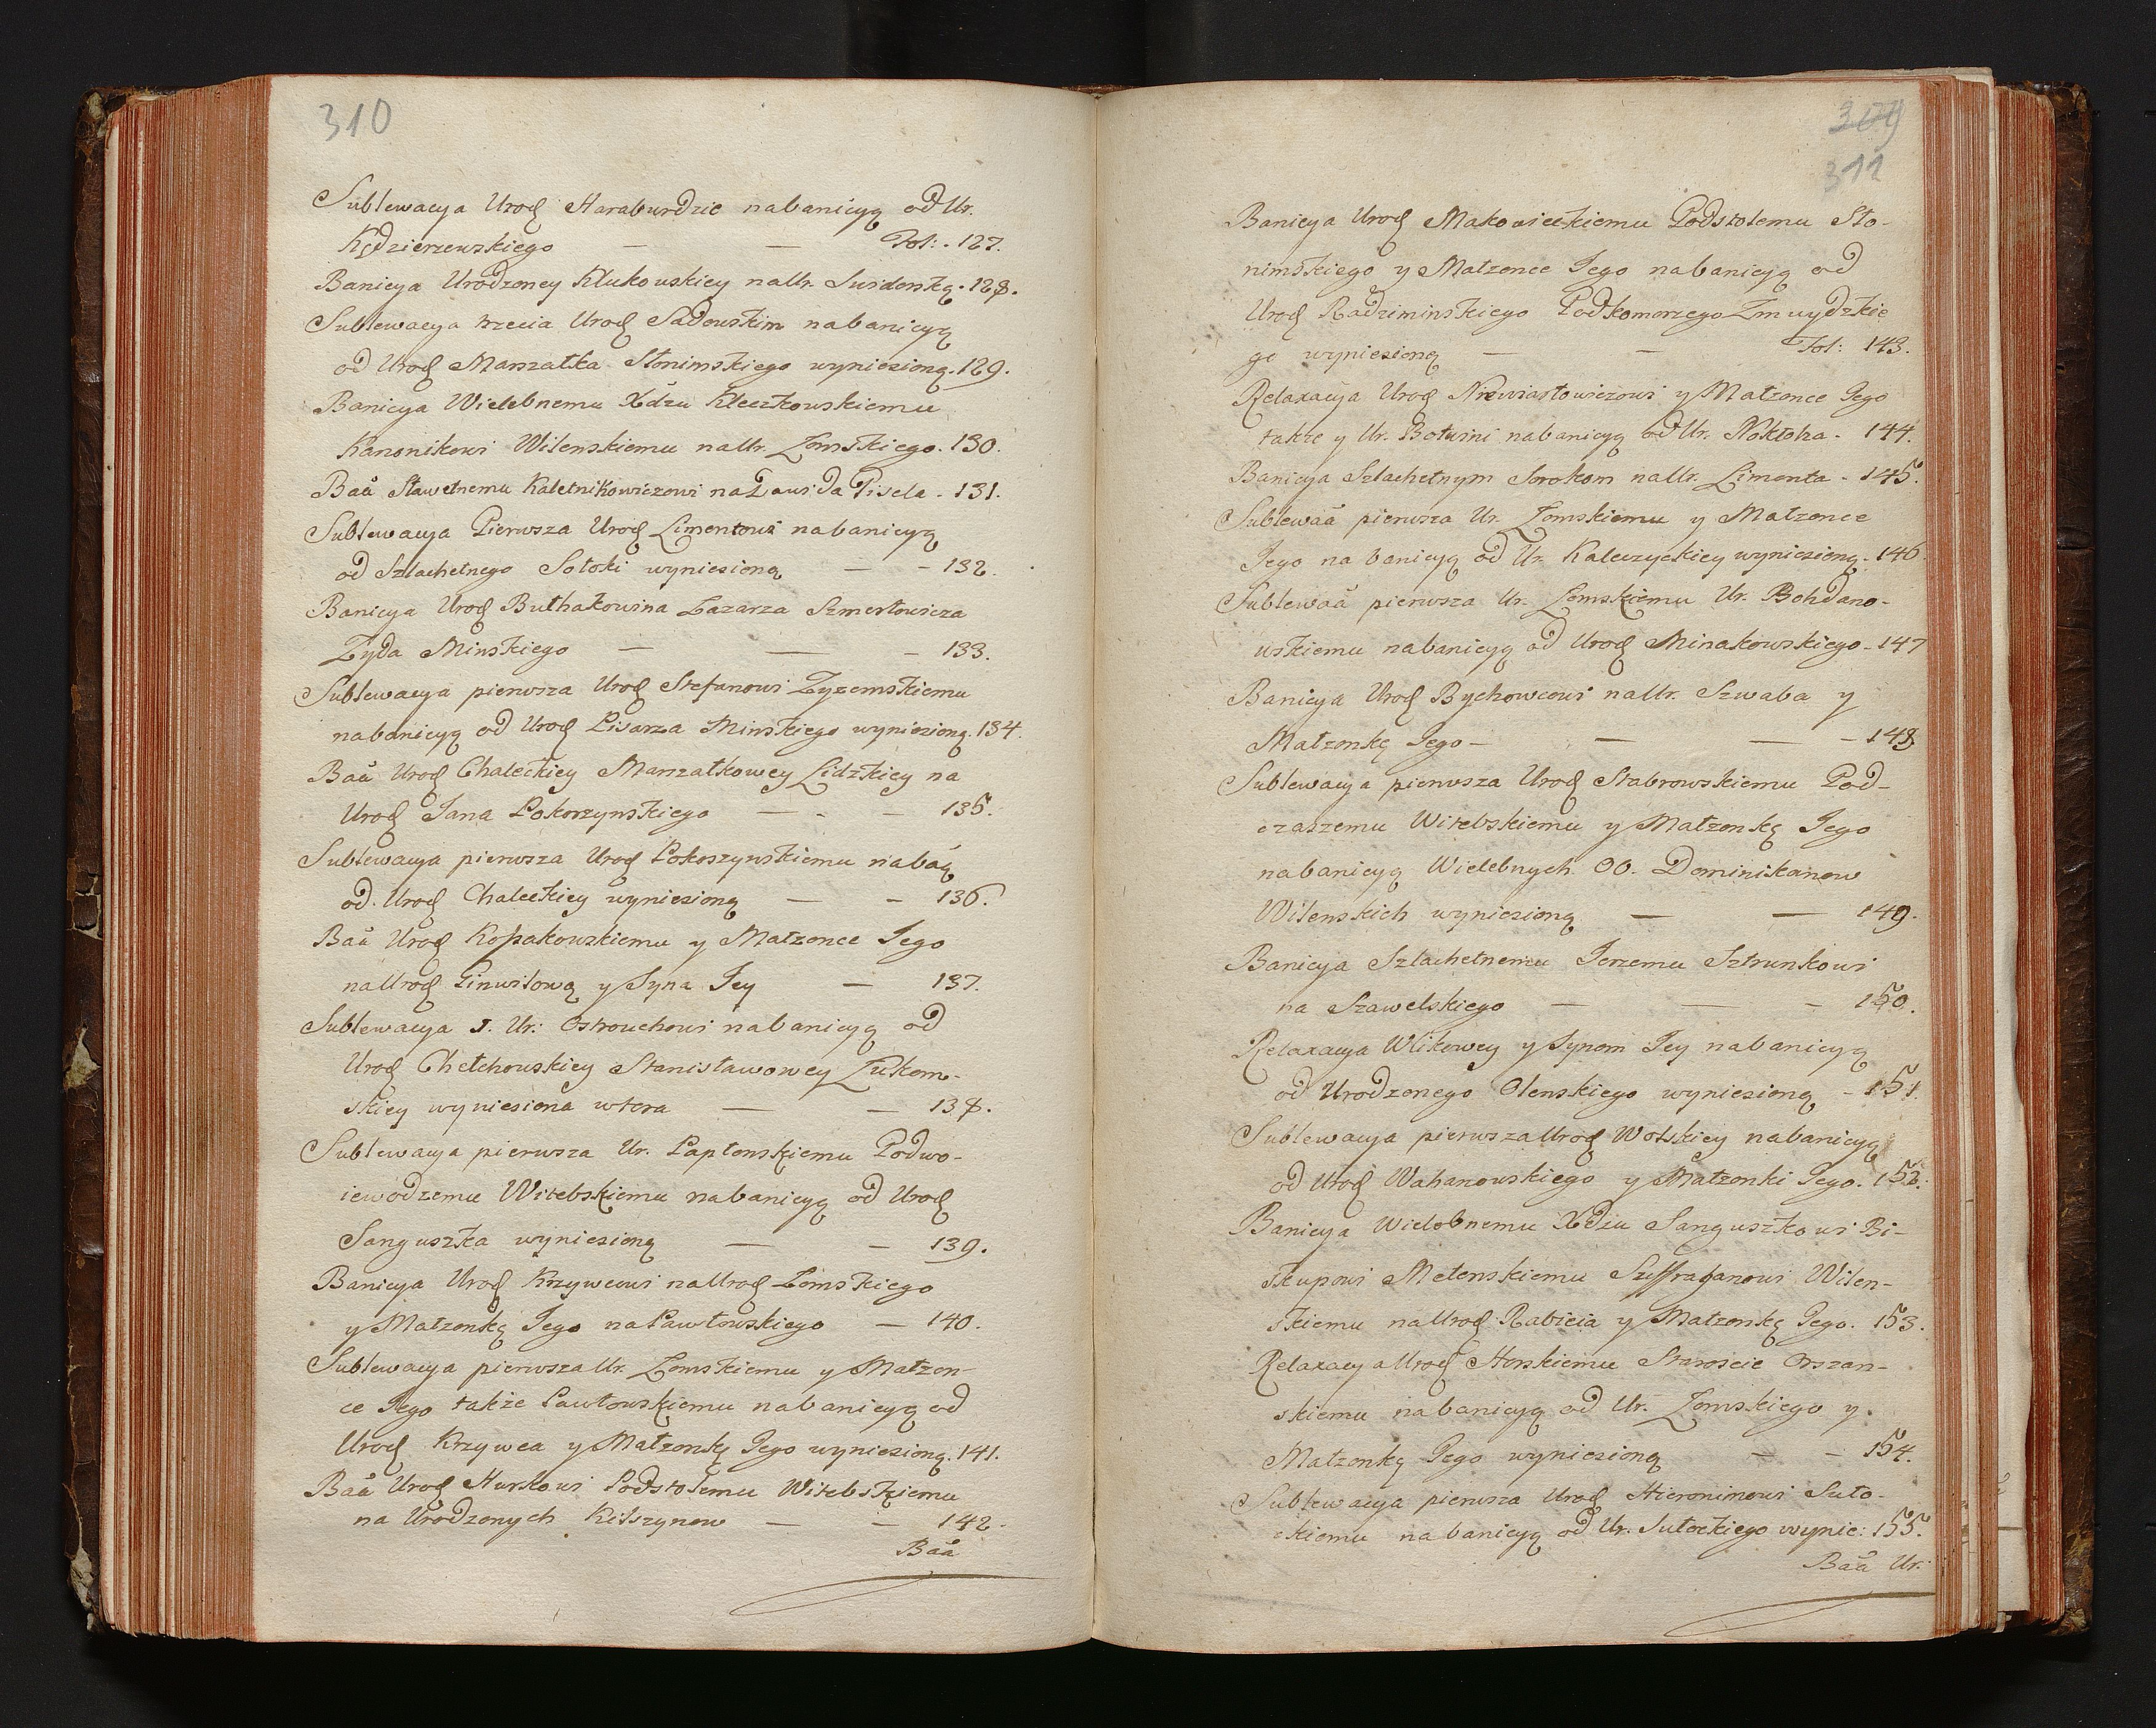 310
Sublewacya Urod Haraburdzie na banicyą od Ur.
Kędzierzewskiego — — Fol: 127.
Banicya Urodzoney Klukowskiey na Ur. Swidorską. 128.
Sublewacya trzecia Urod Sadowskim na banicyą
od Urod Marszałka Słonimskiego wyniesioną. 129.
Banicya Wielebnemu Xdzu Kleczkowskiemu
Kanonikowi Wilenskiemu na Ur. Łomskiego. 130.
Baa Sławetnemu Kaletnikowiczowi na Dawida Pisela. 131.
Sublewacya Pierwsza Urod Limontowi na banicyą
od Szlachetnego Sołoki wyniesioną — — 132.
Banicya Urod Buthakowina Łazarza Szmerłowicza
Zyda Minskiego — — — 133.
Sublewacya pierwsza Urod Stefanowi Zyzemskiemu
na banicyą od Urod Pisarza Minskiego wyniesioną. 134.
Baa Urod Chaleckiey Marszałkowey Lidzkiey na
Urod Jana Pokorzynskiego — — 135.
Sublewacya pierwsza Urod Pokoszynskiemu na baą
od Urod Chaleckiey wyniesioną — — 136.
Baa Urod Kossakowskiemu y Małzonce Jego
na Urod Pinwiłową y Syna Jey — 137.
Sublewacya 1. Ur: Ostrouchowi na banicyą od
Urod Chełchowskiey Stanisławowey Łukom-
skiey wyniesiona wtora — — 138.
Sublewacya pierwsza Ur. Łaptonskiemu Podwo-
iewodzemu Witebskiemu na banicyą od Urod
Sanguszka wyniesioną — — 139.
Banicya Urod Krzywcowi na Urod Łomskiego
y Małzonkę Jego na Pawłowskiego — 140.
Sublewacya pierwsza Ur. Łomskiemu y Małzon-
ce Jego także Pawłowskiemu na banicyą od
Urod Krzywca y Małzonkę Jego wyniesioną. 141.
Baa Urod Hurkowi Podstolemu Witebskiemu
na Urodzonych Kiłszynow — — 142.
Baa
309
311
Banicya Urod Makowieckiemu Podstolemu Sło-
nimskiego y Małzonce Jego na banicyą od
Urod Radziminskiego Podkomorzego Zmuydzkie
go wyniesioną — — Fol: 143.
Relaxacya Urod Niewiarłowiczowi y Małzonce Jego
takze y Ur. Botwini na banicyą od Ur. Nokłoha. 144.
Banicya Szlachetnym Sorokom na Ur. Limonta - 145.
Sublewaa pierwsza Ur. Łomskiemu y Małzonce
Jego na banicyą od Ur. Kaleczyckiey wyniesioną. 146
Sublewaa pierwsza Ur. Łomskiemu Ur. Bohdano-
wskiemu na banicyą od Urod Minakowskiego - 147
Banicya Urod Bychowcowi na Ur. Szwaba y
Małzonkę Jego — — — 148
Sublewacya pierwsza Urod Stabrowskiemu Pod-
czaszemu Witebskiemu y Małzonkę Jego
na banicyą Wielebnych OO. Dominikanow
Wilenskich wyniesioną — — 149.
Banicya Szlachetnemu Jerzemu Sztrunkowi
na Szawelskiego — — 150.
Relaxacya Wlikowey y Synom Jey na banicyą
od Urodzonego Olenskiego wyniesioną - 151.
Sublewacya pierwsza Urod Wolskiey na banicyą
od Urod Wahanowskiego y Małzonki Jego. 152.
Banicya Wielebnemu Xdzu Sanguszkowi Bi-
skupowi Metenskiemu Suffraganowi Wilen-
skiemu na Urod Rabieia y Małzonkę Jego. 153.
Relaxacya Urod Horskiemu Staroscie Orszan-
skiemu na banicyą od Ur. Łomskiego y
Małzonkę Jego wyniesioną — — 154.
Sublewacya pierwsza Urod Hieronimowi Suło-
ckiemu na banicyą od Ur. Sułockiego wynie: 155.
Baa Ur.